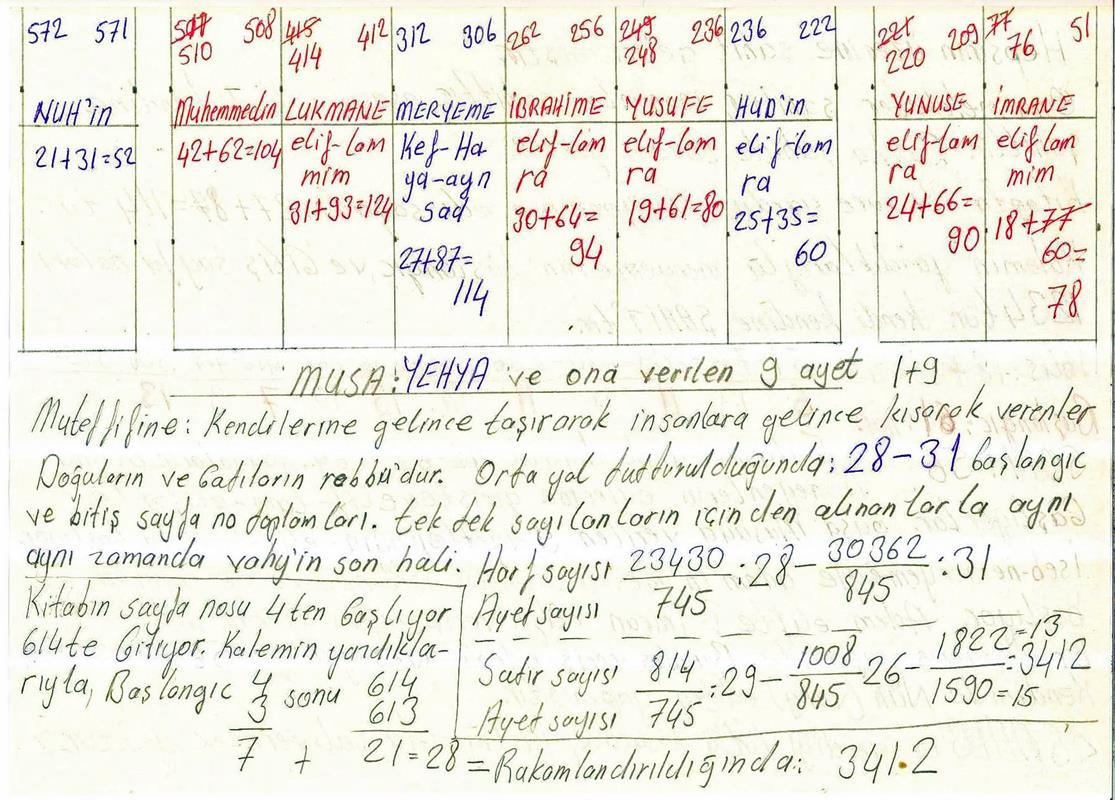 572 571 507 508 415 412 312 306 262 256 249 236 236 222 221 209 77 51
510 414 248 220 76
NUH'in Muhemmedin LUKMANE MERYEME İBRAHİME YUSUFE HUD'in YUNUSE İMRANE
21+31=52 42+62=104 elif-lam Kef-Ha elif-lam elif-lam elif-lam elif-lam elif lam
mim ya-ayn ra ra ra ra mim
31+93=124 Sad 30+64= 19+61=80 25+35= 24+66= 18+77
27+87= 94 60 90 60=
114 78
MUSA: YEHYA ve ona verilen 9 ayet 1+9
Muteffifine: Kendilerine gelince taşırarak insanlara gelince kısarak verenler
Doğuların ve batıların rabbı'dur. Orta yol tutturulduğunda: 28-31 başlangıc
ve bitiş sayfa no toplamları. tek tek sayılanların içinden alınanlarla aynı
aynı zamanda vahy'in son hali. Harf sayısı 23430 :28- 30362 :31
Ayet sayısı 745 845
Kitabın sayfa nosu 4 ten başlıyor
614 te bitiyor. Kalemin yazdıkla-
rıyla, Başlangıc 4 sonu 614
3 613
7 + 21=28 = Rakamlandırıldığında: 341.2
Satır sayısı 814 :29- 1008 26- 1822=13 :3412
Ayet sayısı 745 845 1590=15